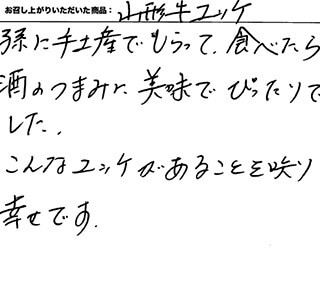 お召し上がりいただいた商品： 山形牛ユッケ
孫に手土産でもらって、食べたら
酒のつまみに美味でぴったりで
した。
こんなユッケがあることを
幸せです。